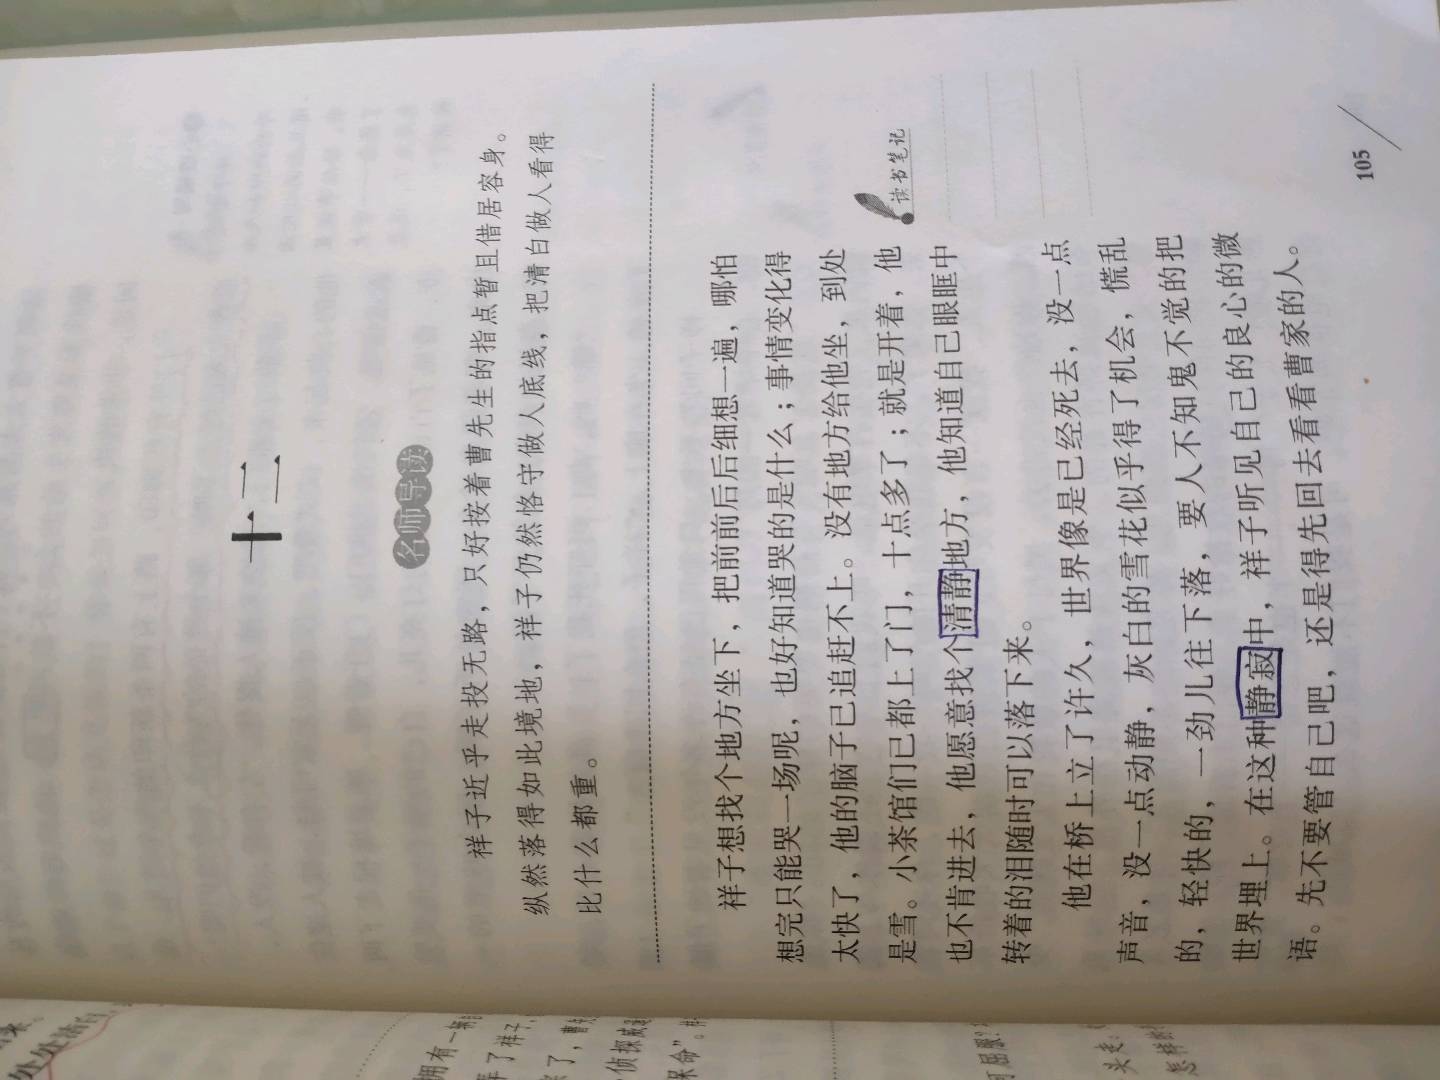 十二
名师导读
祥子近乎走投无路，只好按着曹先生的指点暂且借居容身。
纵然落得如此境地，祥子仍然恪守做人底线，把清白做人看得
比什么都重。
祥子想找个地方坐下，把前前后后细想一遍，哪怕
想完只能哭一场呢，也好知道哭的是什么；事情变化得
太快了，他的脑子已追赶不上。没有地方给他坐，到处
是雪。小茶馆们已都上了门，十点多了；就是开着，他
也不肯进去，他愿意找个清静地方，他知道自己眼眶中
转着的泪随时可以落下来。
他在桥上立了许久，世界像是已经死去，没一点
声音，没一点动静，灰白的雪花似乎得了机会，慌乱
的，轻快的，一劲儿往下落，要人不知鬼不觉的把
世界埋上。在这种静寂中，祥子听见自己的良心的微
语。先不要管自己吧，还是得先回去看看曹家的人。
读书笔记
105
处处清白
拥有一辆
了祥子，
了，曹先
侦探
命”。
可屈服?
头走
怎样